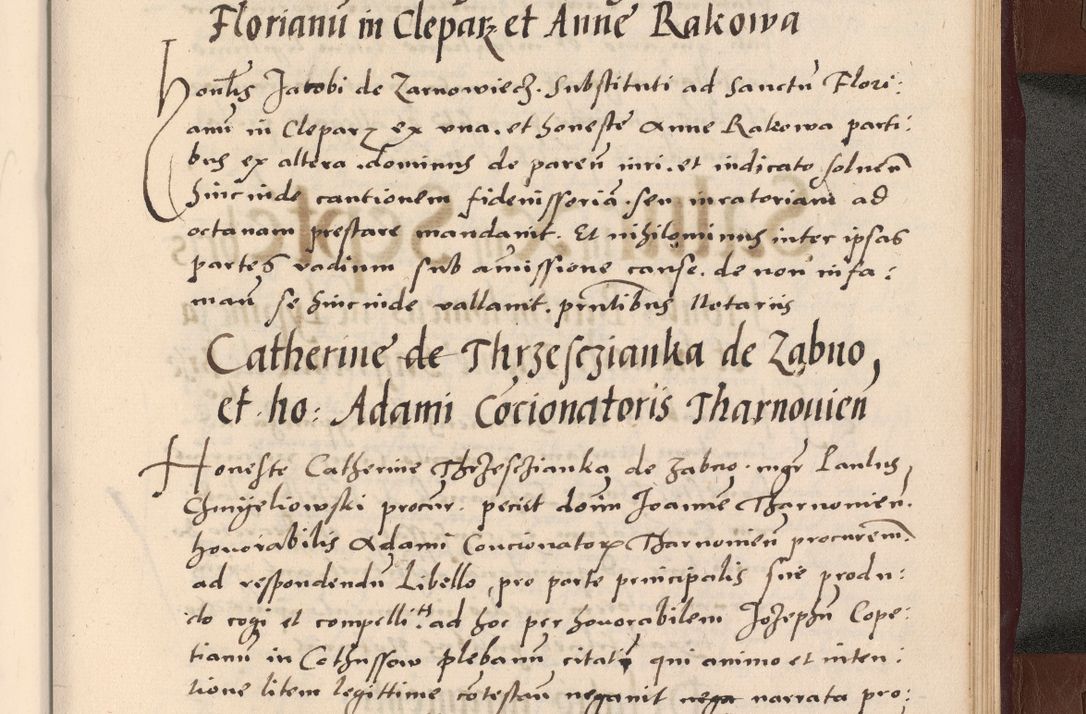 Florianū in Cleparz et Anne Rakowa
Honlis Jacobi de Zarnowiecz. Substituti ad Sanctū Flori:
anū in Cleparz ex vna. et honeste Anne Rakowa parti:
bus ex altera. dominus de pareñ iuri. et iudicato soluen
hincinde cautionem fideiussoriā. seu iuratoriam ad
octauam prestare mandauit. Et nihilominus inter ipsas
partes vadium sub amissione cause. de non infa:
mañ se hincinde vallauit. pñtibus Notariis
Catherine de Thrzesczianka de Zabno,
et ho: Adami Cōcionatoris Tharnouien
Honeste Catherine Thrzesczianka de Zabno. mgr Paulus
Chmyeliowski procur. peciit doīm Joannē Tharnouien.
honorabilis Adami Concionator Tharnouieñ procurem.
ad respondendū Libello pro parte principalis sue produ:
cto cogi et compelli. ad hoc per honorabilem Jozephū Cope:
tianū in Cothussow plebanum citatū qui animo et inten:
tione litem legittime cōtestañ negauit narrata pro: